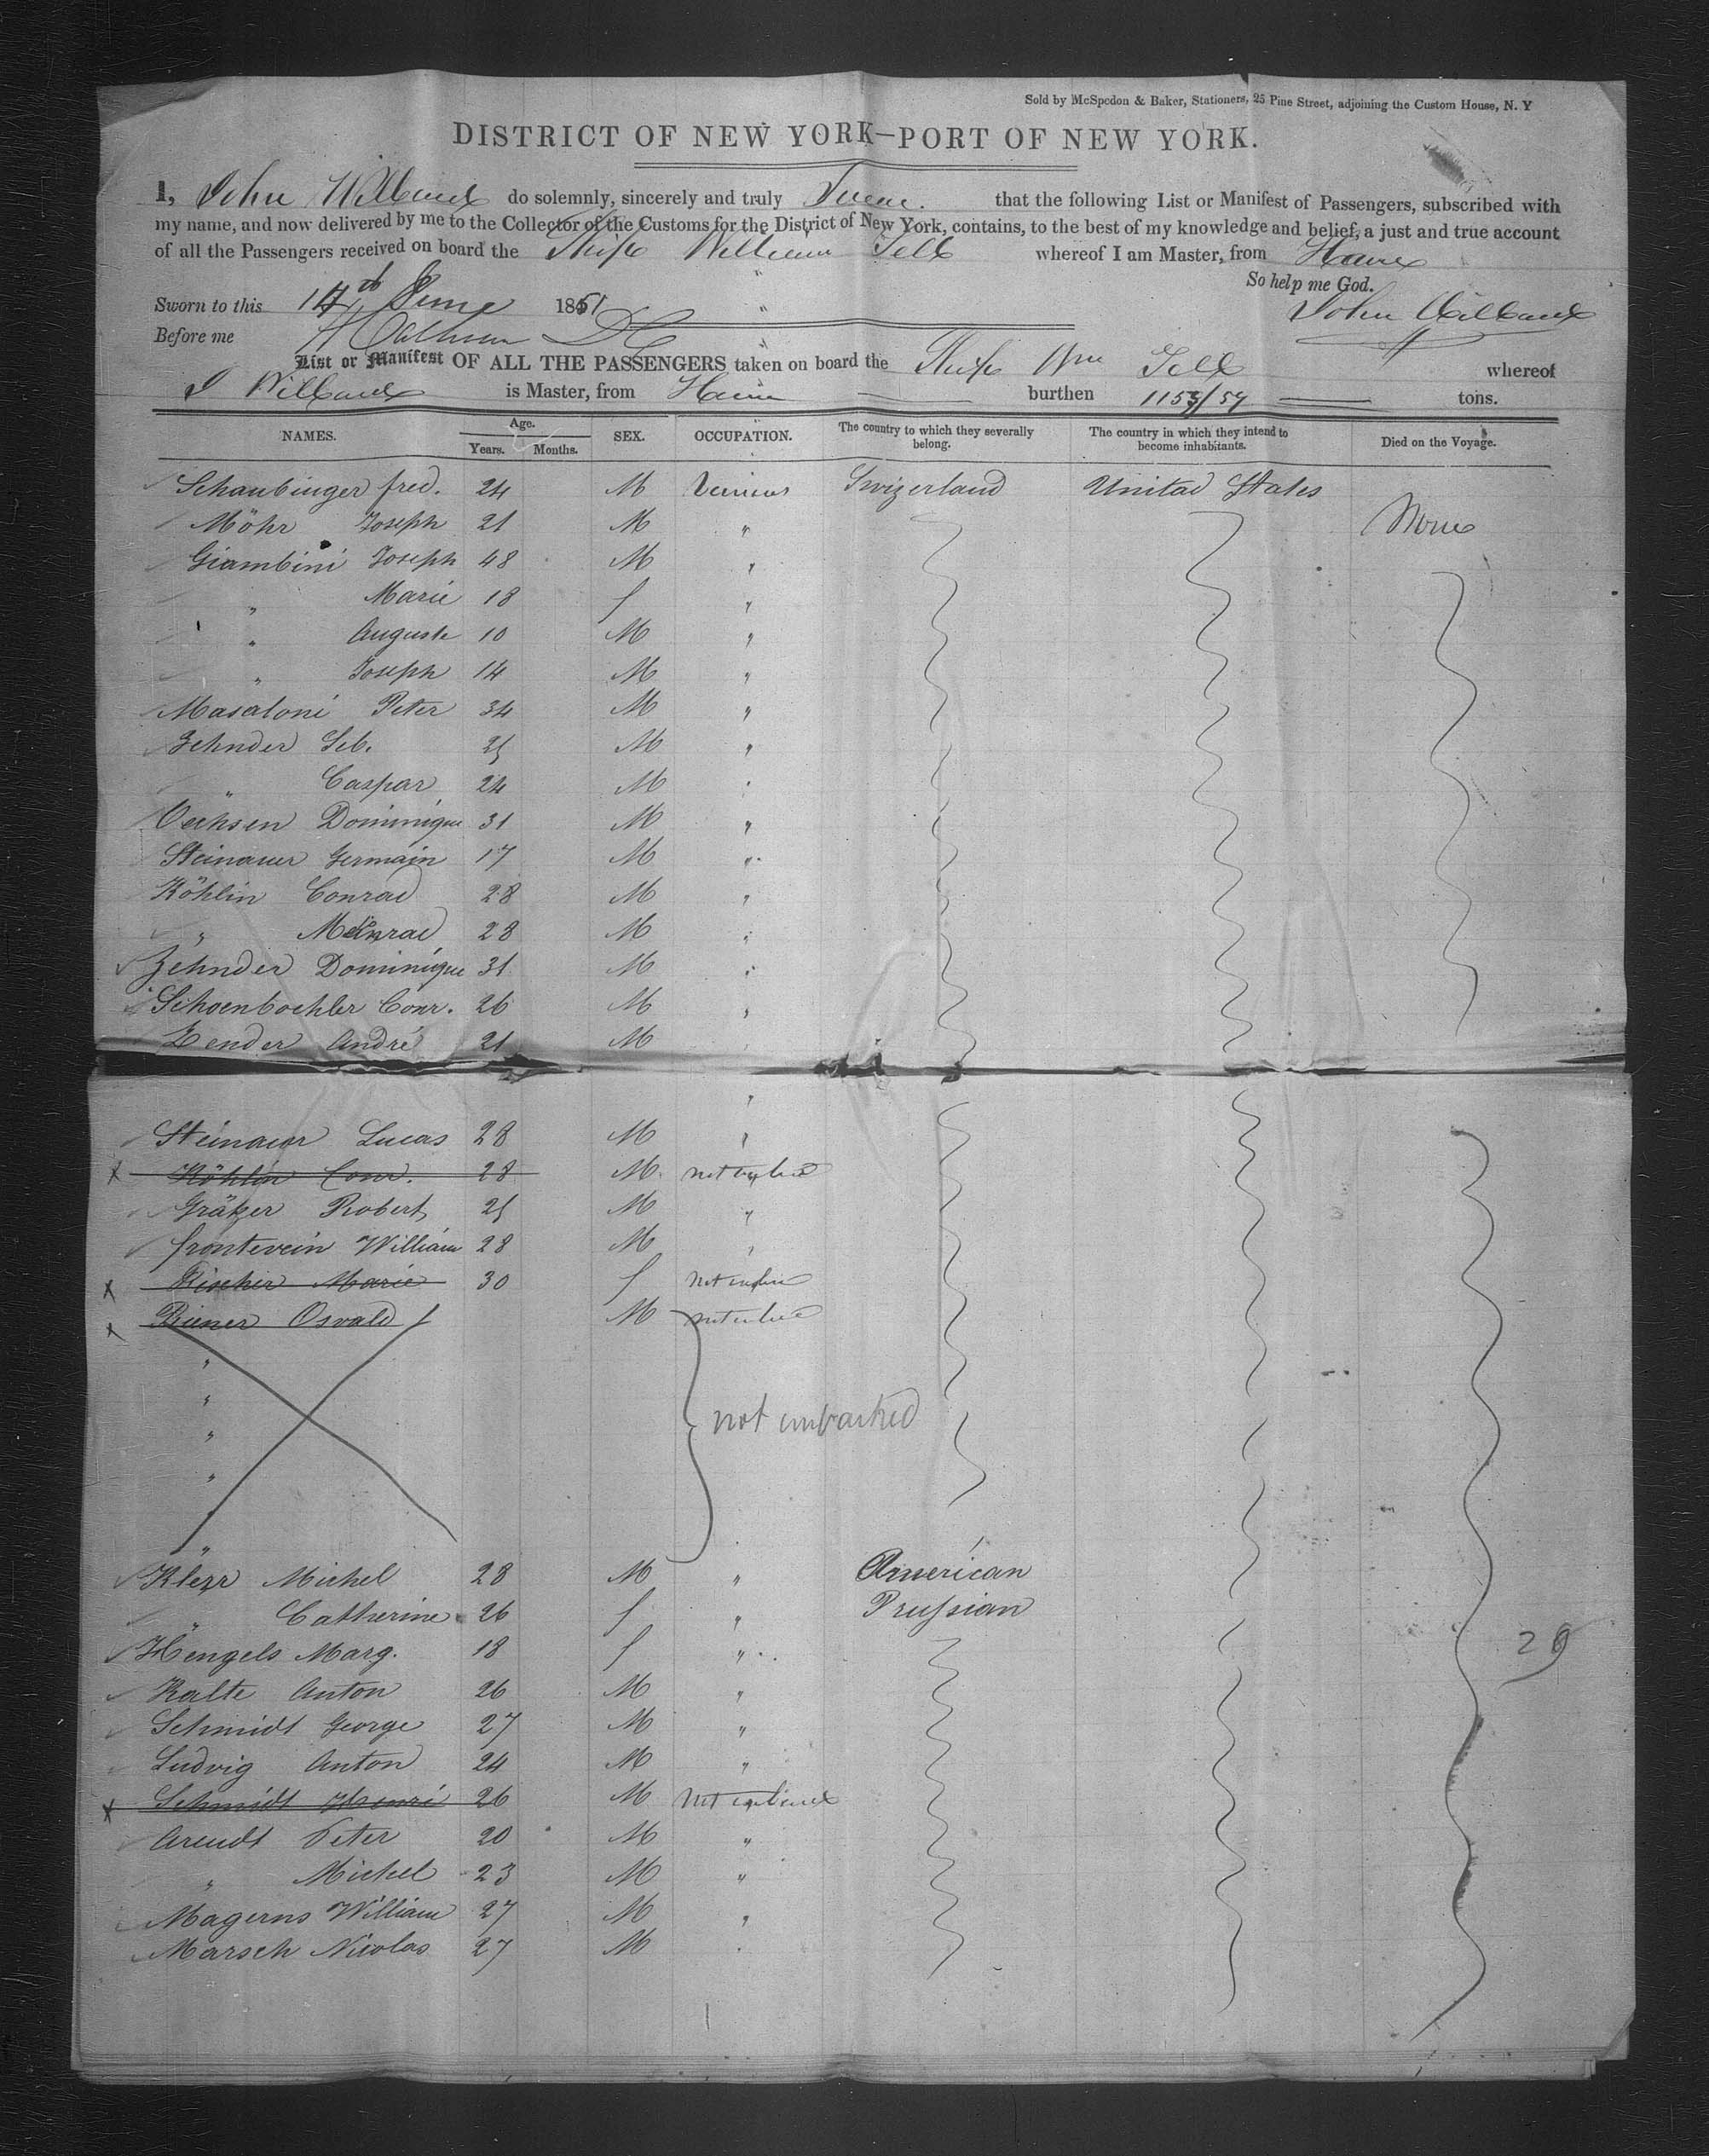 Sold by McSpedon & Baker, Stationers, 25 Pine Street, adjoining the Custom House, N. Y
DISTRICT OF NEW YORK—PORT OF NEW YORK.
I, John Willcuck do solemnly, sincerely and truly Swear. that the following List or Manifest of Passengers, subscribed with
my name, and now delivered by me to the Collector of the Customs for the District of New York, contains, to the best of my knowledge and belief, a just and true account
of all the Passengers received on board the Ship William Tell whereof I am Master, from Havre
So help me God.
Sworn to this 14th June 1851 John
Before me
List or Manifest OF ALL THE PASSENGERS taken on board the Ship Wm Tell whereof
J is Master, from Havre burthen 1153/54 tons.
NAMES. Age. Years. Months. SEX. OCCUPATION. The country to which they severally belong. The country in which they intend to become inhabitants. Died on the Voyage.
Schaubinger fred. 24 M Various Swizerland United States
Möhr Joseph 21 M " None
Giambini Joseph 48 M "
" Marie 18 f "
" Auguste 10 M "
" Joseph 14 M "
Masaloni Peter 34 M "
Zehnder Seb. 25 M "
" Caspar 24 M "
Oechsen Dominique 31 M "
Steinauer Germain 17 M "
Köhlin Conrad 28 M "
" Meinrad 28 M "
Zehnder Dominique 31 M "
Schoenboehler Conr. 26 M "
Zender André 21 M "
"
Steinauer Lucas 28 M "
Köhlin Conr. 28 M not embarked
Gräzer Robert 25 M "
frontevein William 28 M "
Fischer Marie 30 f not embarked
Riener Osvald M not embarked
"
"
" not embarked
"
"
Klezr Michel 28 M " American
" Catherine 26 f " Prussian
Hengels Marg. 18 f " 29
Kalte Anton 26 M "
Schmidt George 27 M "
Ludvig Anton 24 M "
Schmidt Henri 26 M not embarked
Arendt Peter 20 M "
" Michel 23 M "
Magerns William 27 M "
Marsch Nicolas 27 M "